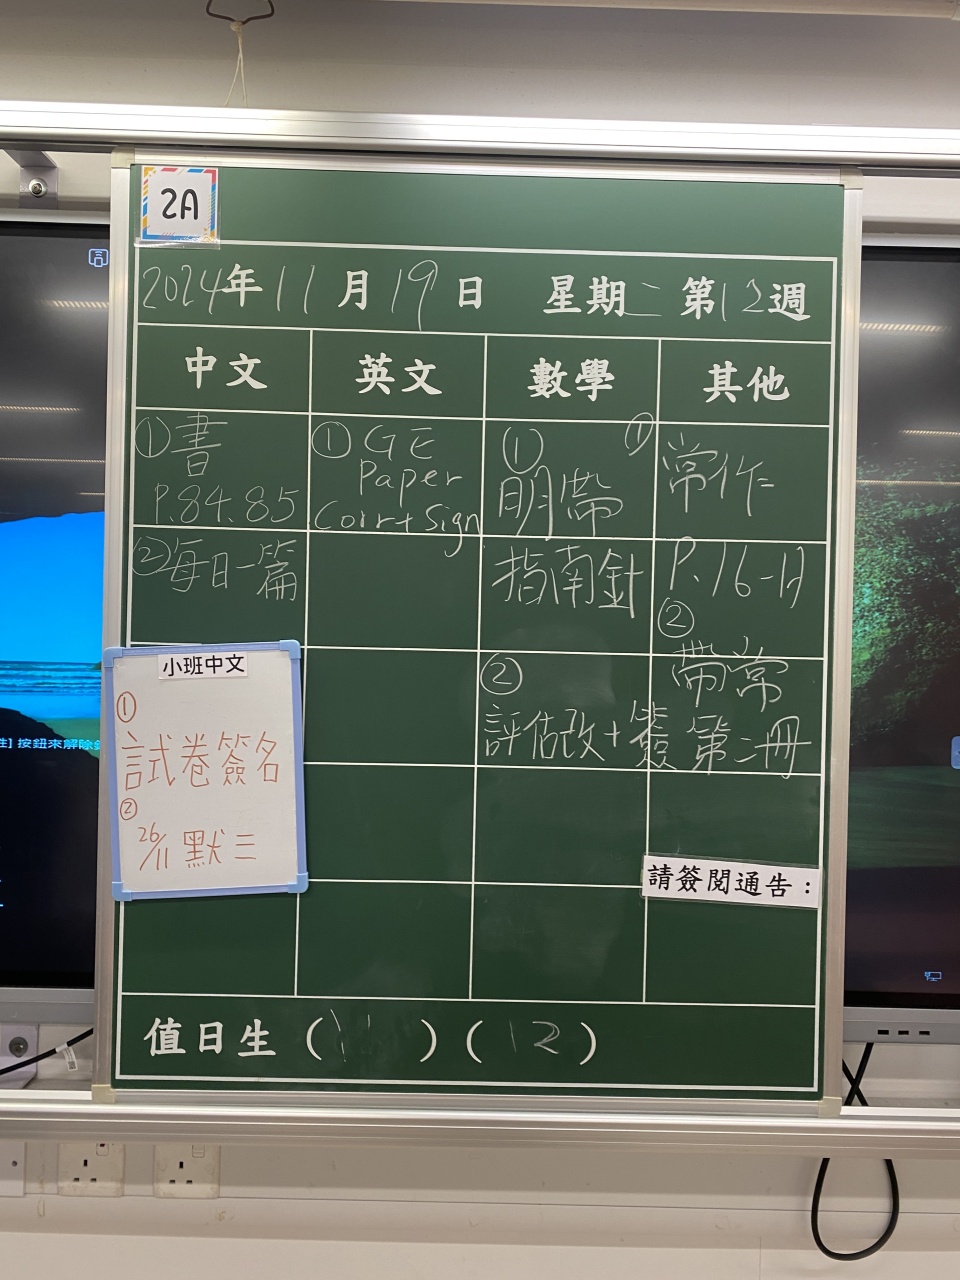 2A
2024年11月19日 星期二 第12週
中文 英文 數學 其他
①書
P.84.85
②每日一篇
小班中文
①
試卷簽名
②
26/11 默三
① GE
Paper
Corr+Sign
①
明帶
指南針
②
評估改+簽
①
常作
P.16-17
②
帶常
第二冊
請簽閱通告：
值日生（11）（12）